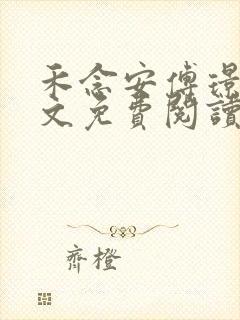 禾念安傅璟
文免費閱讀
齊橙